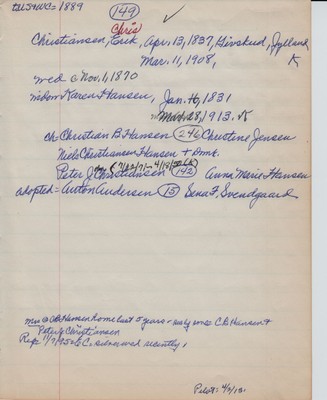 149
Chris
Christiansen, Erik, Apr. 13, 1837, Givskud, Jylland
Mar. 11, 1908,
med Nov 1, 1870
Karen Hansen, Jan. 16, 1831
Mar 28, 1913.
ch Christian B Hansen (246) Christine Jensen
Niels Christiansen Hansen + Dmk.
Peter J Christiansen (142) Anna Marie Hansen
adopted = Anton Andersen (15) Sena F. Svendgaard
Mrs @ CB Hansen home last 5 years - early CB Hansen +
Peter J Christiansen
Rep. 1/9/95 C. recently,
Pilot: 4/9/13.